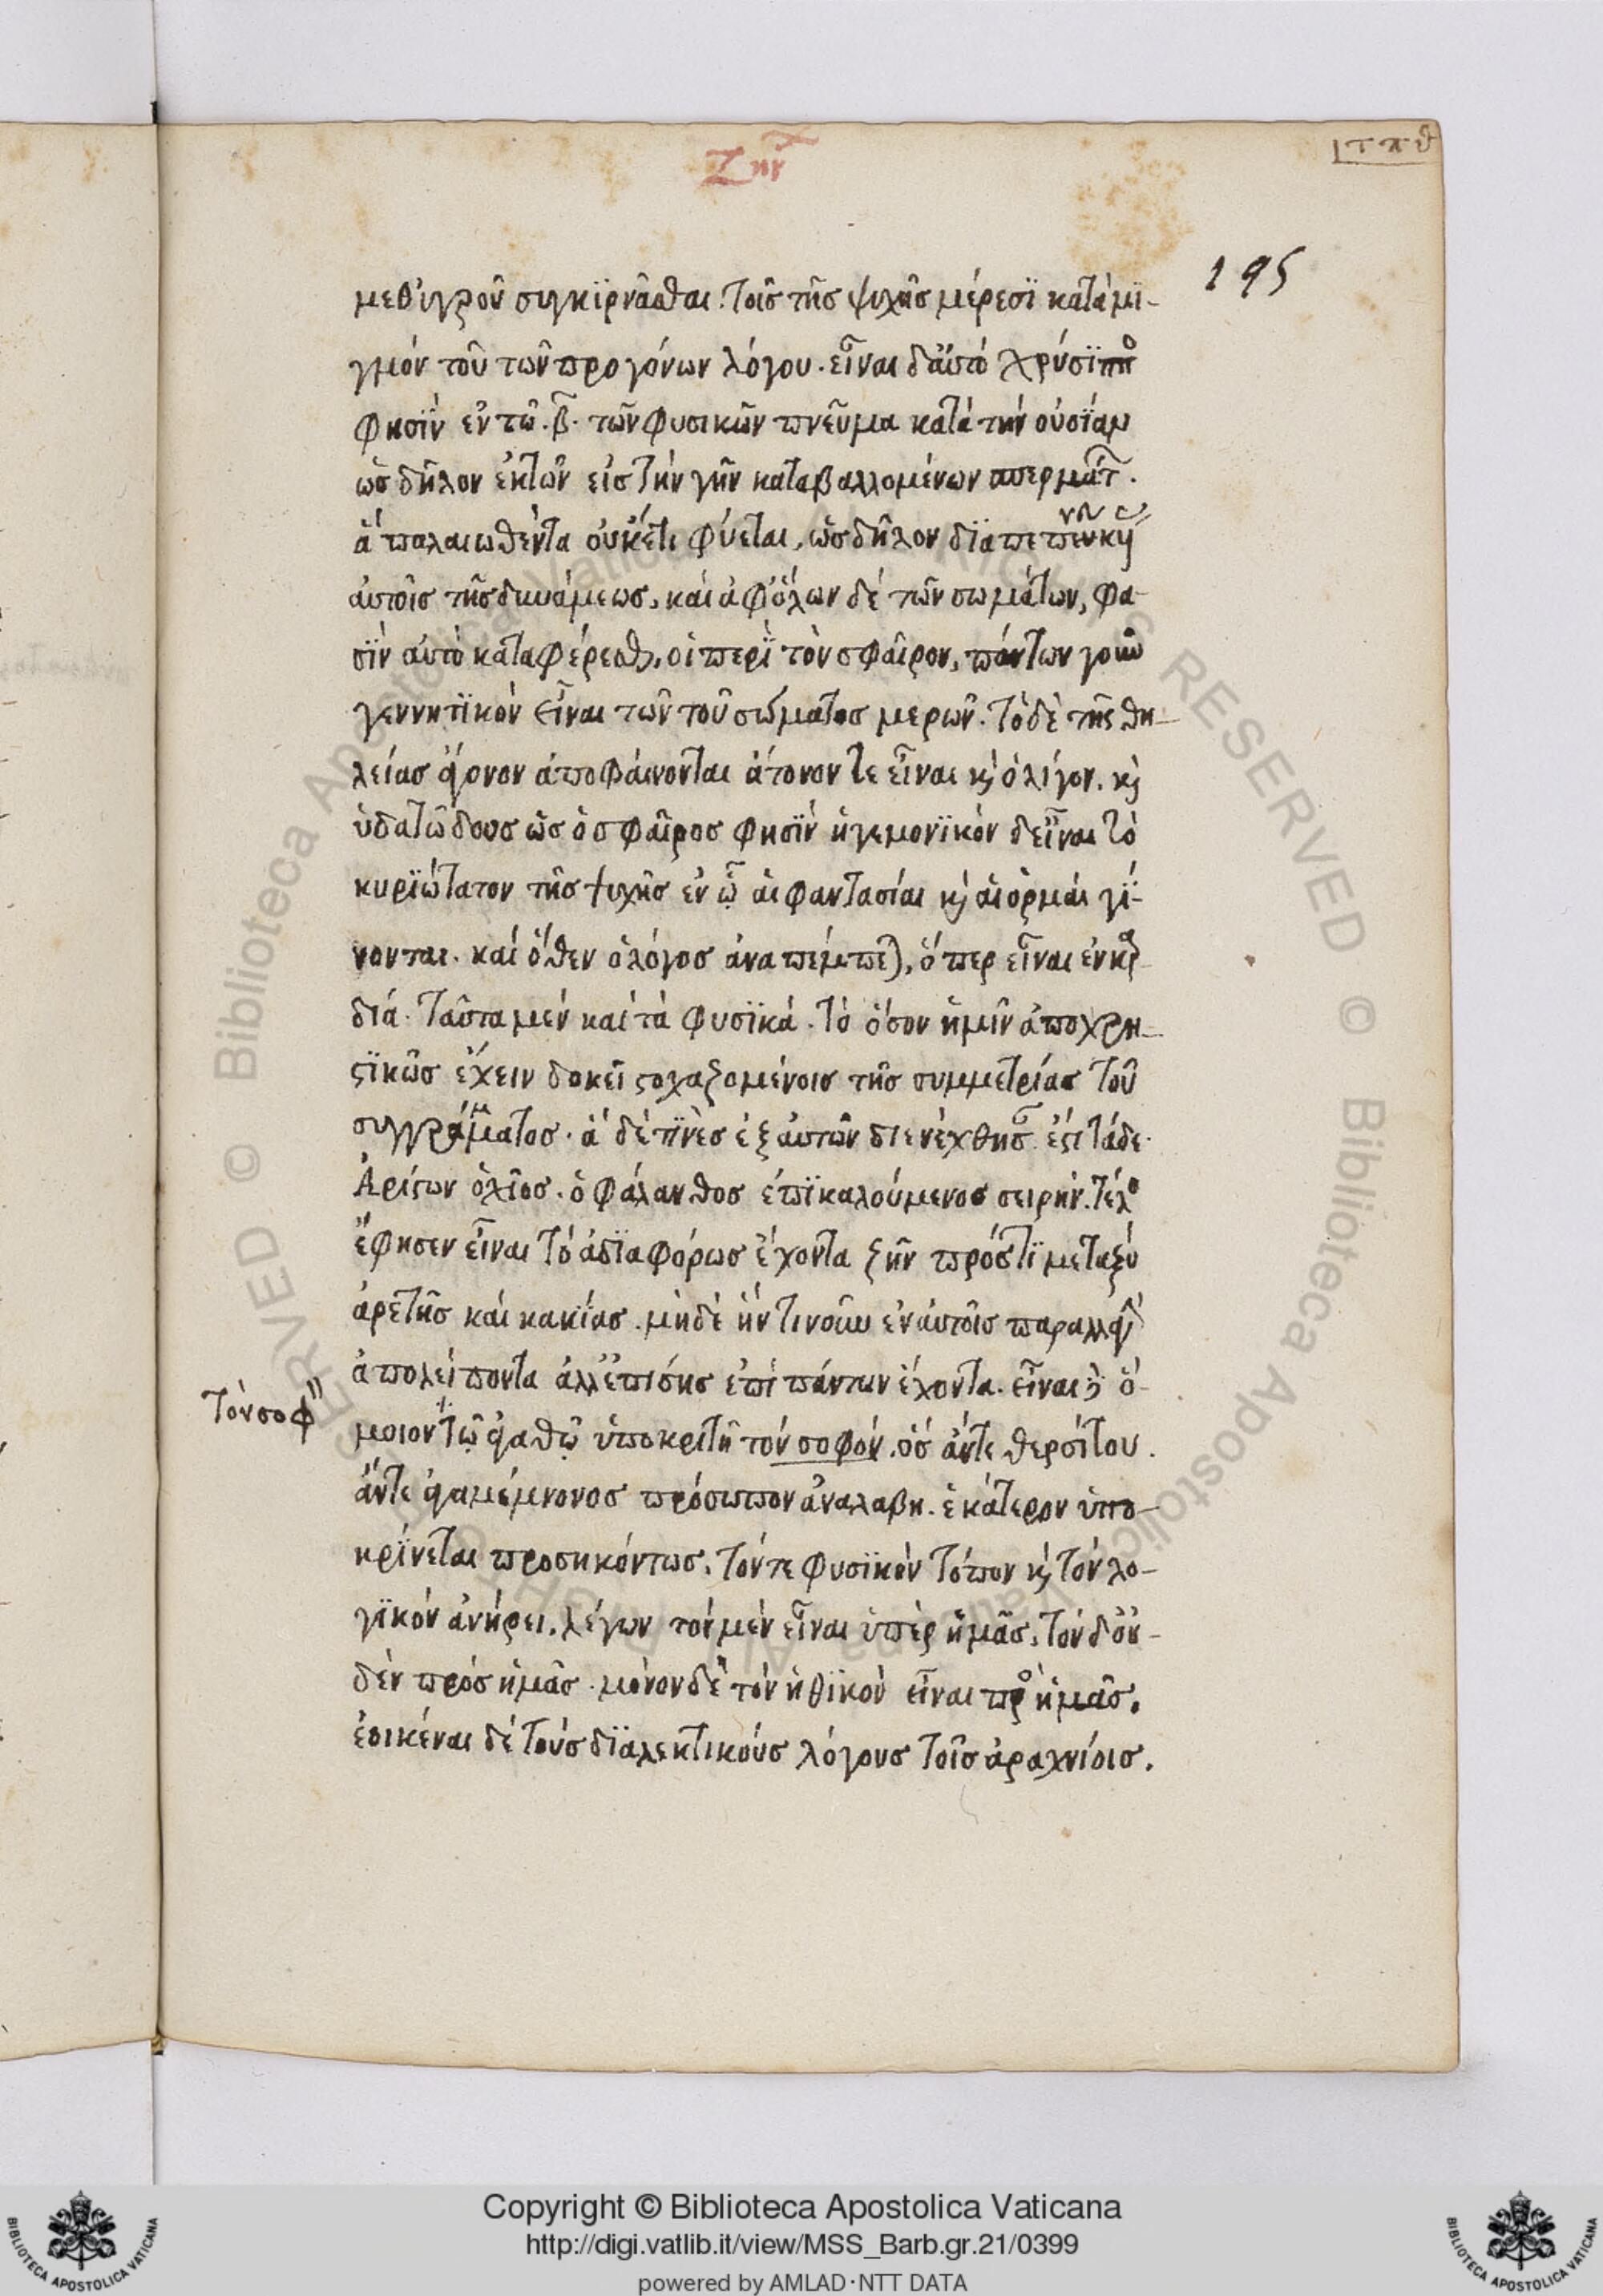 Ζην
τπθ
195
μεθ' ὑγροῦ συγκϊρνᾶσθαι. τοῖς τῆς ψυχῆς μέρεσϊ κατὰ μϊ-
γμόν τοῦ τῶν προγόνων λόγου. εἶναι δ' αὐτό χρύσϊππο
φησϊν ἐν τῶ .β. τῶν φυσικῶν πνεῦμα κατά τήν οὐσϊαν
ὡς δῆλον ἐκ τῶν εἰς τήν γῆν καταβαλλομένων σπερμάτ.
ἅ παλαιωθέντα οὐκέτι φύεται, ὡς δῆλον δϊαπεπν
αὐτοῖς τῆς δυνάμεως, καί ἀφ' ὅλων δέ τῶν σωμάτων, φα-
σϊν αὐτό καταφέρεσθ, οἱ περϊ τὸν σφαῖρον, πάντων γοῦν
γεννητϊκόν εἶναι τῶν τοῦ σώματος μερῶν. τὸ δὲ τῆς θη-
λείας ἄγονον ἀποφαίνονται ἄτονον τε εἶναι κ ὀλίγον. κ
ὑδατώδους ὡς ὁ σφαῖρος φησϊν ἡγεμονϊκόν δ' εἶναι τό
κυρϊώτατον τῆς ψυχῆς ἐν ᾧ αἱ φαντασίαι κ αἱ ὁρμαί γϊ-
νονται. καί ὅθεν ὁ λόγος ἀναπέμπε), ὅπερ εἶναι ἐν καρ-
δία. ταῦτα μέν καί τά φυσϊκά. τό ὅσον ἡμῖν ἀποχρη-
ςϊκῶς ἔχειν δοκεῖ ςοχαζομένοις τῆς συμμετρίας τοῦ
συγγράμματος. ἅ δέ τϊνές ἐξ αὐτῶν διενέχθησ ἐςι τάδε.
Ἀρίςων ὁ χῖος. ὁ φάλανθος ἐπϊκαλούμενος σειρήν. τέλο
ἔφησεν εἶναι τό ἀδϊαφόρως ἔχοντα ζῆν πρός τϊ μεταξύ
ἀρετῆς καί κακίας. μηδέ ἥν τινοῦν ἐν αὐτοῖς παραλλαγ
ἀπολείποντα ἀλλ' ἐπίσης ἐπί πάντων ἔχοντα. εἶναι γ ὅ-
μοιον τῷ ἀγαθῷ ὑποκριτῆ τόν σοφόν. ὅς ἄντε θερσίτου.
τόν σοφ
ἄντε ἀγαμέμνονος πρόσωπον ἀναλαβη. ἑκάτερον ὑπο-
κρίνεται προσηκόντως. τόν τε φυσϊκόν τόπον κ τόν λο-
γϊκόν ἀνήρει. λέγων τόν μέν εἶναι ὑπέρ ἡμᾶς, τόν δ' οὐ-
δέν πρός ἡμᾶς. μόνον δέ τόν ἠθϊκόν εἶναι προ ἡμᾶς.
ἐοικέναι δέ τούς δϊαλεκτικούς λόγους τοῖς ἀραχνίοις.
Copyright © Biblioteca Apostolica Vaticana
http://digi.vatlib.it/view/MSS_Barb.gr.21/0399
powered by AMLAD·NTT DATA